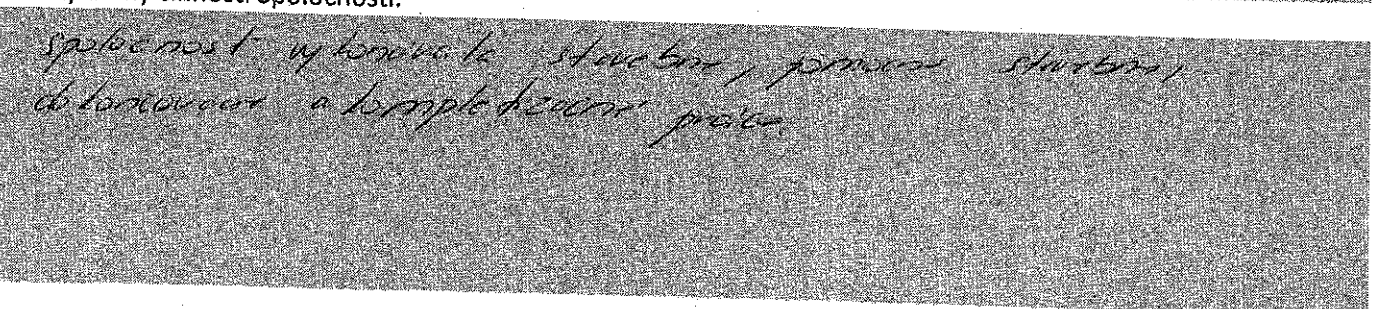 činnosti spoločnosti.
spoločnosť vykonávala stavebné, pomocné stavebné,
dokončovacie a kompletizačné práce